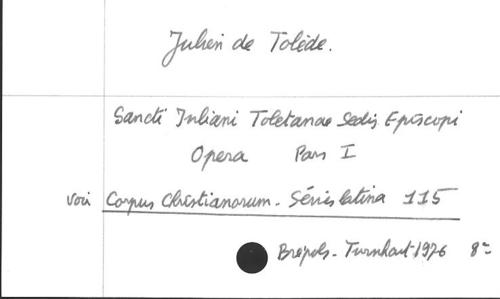 Julien de Tolède.
Sancti Iuliani Toletanae Sedis Episcopi
Opera Pars I
Voir Corpus Christianorum - Séries latina 115
Brépols - Turnhout 1976 8°